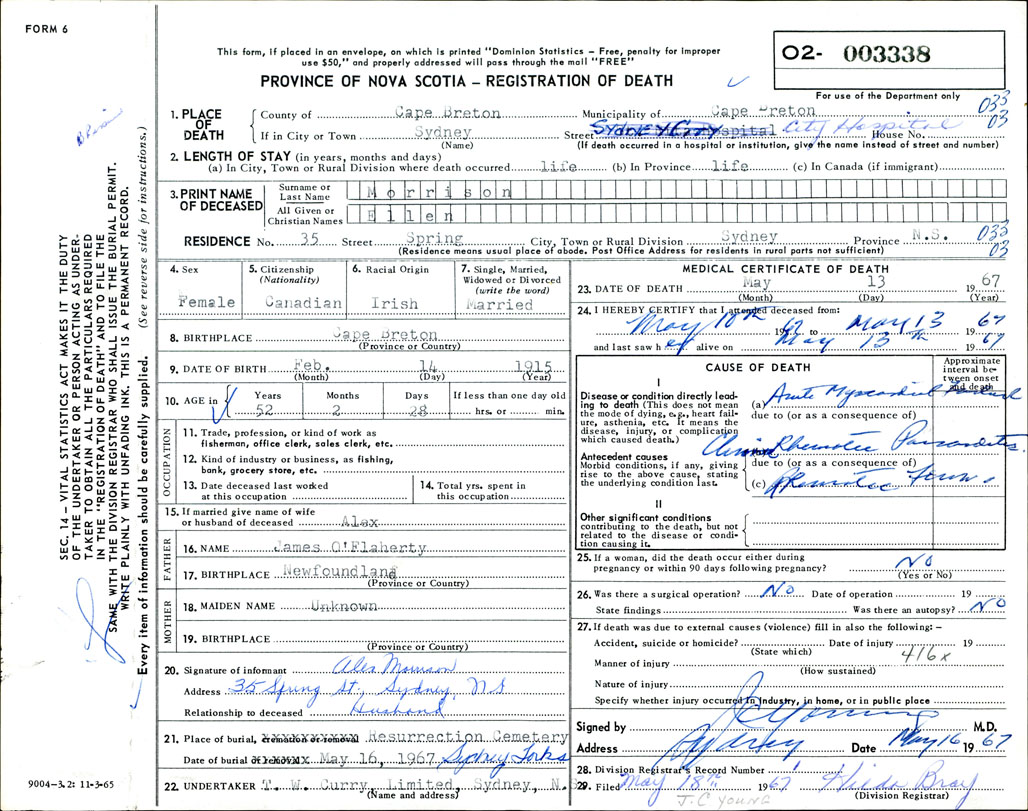 FORM 6
This form, if placed in an envelope, on which is printed "Dominion Statistics – Free, penalty for improper
use $50," and properly addressed will pass through the mail "FREE"
PROVINCE OF NOVA SCOTIA – REGISTRATION OF DEATH
O2- 003338
For use of the Department only
033
03
1. PLACE OF DEATH
County of Cape Breton Municipality of Cape Breton
If in City or Town Sydney Street Sydney City Hospital City Hospital House No.
(Name) (If death occurred in a hospital or institution, give the name instead of street and number)
2. LENGTH OF STAY (in years, months and days)
(a) In City, Town or Rural Division where death occurred life (b) In Province life (c) In Canada (if immigrant)
3. PRINT NAME OF DECEASED
Surname or Last Name Morrison
All Given or Christian Names Ellen
RESIDENCE No. 35 Street Spring City, Town or Rural Division Sydney Province N.S. 033
03
(Residence means usual place of abode. Post Office Address for residents in rural parts not sufficient)
4. Sex
Female
5. Citizenship
(Nationality)
Canadian
6. Racial Origin
Irish
7. Single, Married,
Widowed or Divorced
(write the word)
Married
8. BIRTHPLACE Cape Breton
(Province or Country)
9. DATE OF BIRTH Feb. 14 1915
(Month) (Day) (Year)
10. AGE in
Years Months Days If less than one day old
52 2 28 hrs. or min.
OCCUPATION
11. Trade, profession, or kind of work as
fisherman, office clerk, sales clerk, etc.
12. Kind of industry or business, as fishing,
bank, grocery store, etc.
13. Date deceased last worked
at this occupation
14. Total yrs. spent in
this occupation
15. If married give name of wife
or husband of deceased Alex
FATHER
16. NAME James O'Flaherty
17. BIRTHPLACE Newfoundland
(Province or Country)
MOTHER
18. MAIDEN NAME Unknown
19. BIRTHPLACE
(Province or Country)
20. Signature of informant Alex Morrison
Address 35 Spring St., Sydney, N.S
Relationship to deceased Husband
21. Place of burial, cremation or removal Resurrection Cemetery
Date of burial or removal May 16, 1967 Sydney Forks
22. UNDERTAKER T. W. Curry, Limited, Sydney, N.S
(Name and address)
MEDICAL CERTIFICATE OF DEATH
23. DATE OF DEATH May 13 1967
(Month) (Day) (Year)
24. I HEREBY CERTIFY that I attended deceased from:
May 10th 1967 to May 13 1967
and last saw her alive on May 13th 1967
CAUSE OF DEATH
Approximate
interval be-
tween onset
and death
I
Disease or condition directly lead-
ing to death (This does not mean
the mode of dying, e.g., heart fail-
ure, asthenia, etc. It means the
disease, injury, or complication
which caused death.)
(a) Acute Myocardial
due to (or as a consequence of)
Rheumatic Pancarditis
Antecedent causes
Morbid conditions, if any, giving
rise to the above cause, stating
the underlying condition last.
due to (or as a consequence of)
(c) Rheumatic Fever.
II
Other significant conditions
contributing to the death, but not
related to the disease or condi-
tion causing it.
25. If a woman, did the death occur either during
pregnancy or within 90 days following pregnancy? No
(Yes or No)
26. Was there a surgical operation? No Date of operation 19
State findings Was there an autopsy? No
27. If death was due to external causes (violence) fill in also the following: –
Accident, suicide or homicide? Date of injury 19
(State which) 416x
Manner of injury
(How sustained)
Nature of injury
Specify whether injury occurred in Industry, in home, or in public place
Signed by J C Young M.D.
Address Sydney Date May 16 1967
28. Division Registrar's Record Number 1
29. Filed May 18th 1967 Hilda Bray
J. C YOUNG (Division Registrar)
SEC. 14 – VITAL STATISTICS ACT MAKES IT THE DUTY
OF THE UNDERTAKER OR PERSON ACTING AS UNDER-
TAKER TO OBTAIN ALL THE PARTICULARS REQUIRED
IN THE "REGISTRATION OF DEATH" AND TO FILE THE
SAME WITH THE DIVISION REGISTRAR WHO SHALL ISSUE THE BURIAL PERMIT.
WRITE PLAINLY WITH UNFADING INK. THIS IS A PERMANENT RECORD.
Every item of information should be carefully supplied. (See reverse side for instructions.)
9004-3.2: 11-3-65